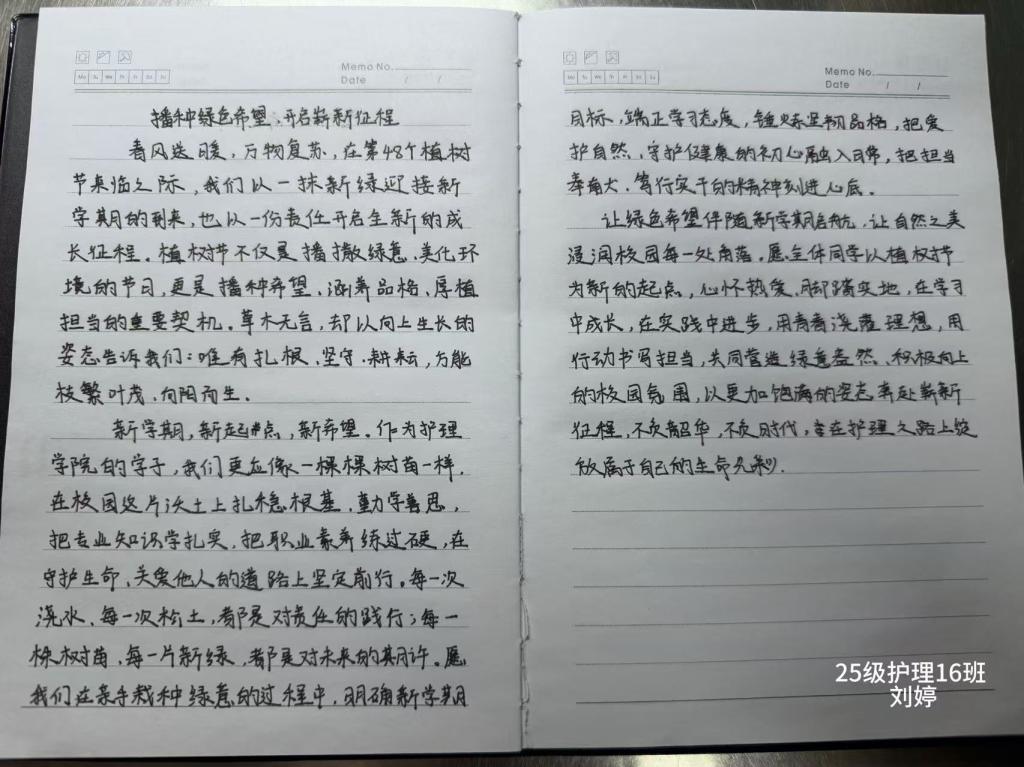 Memo No.
Mo Tu We Th Fr Sa Su
Date / /
播种绿色希望、开启崭新征程
春风送暖，万物复苏，在第48个植树
节来临之际，我们以一抹新绿迎接新
学期的到来，也以一份责任开启全新的成
长征程。植树节不仅是播撒绿意、美化环
境的节日，更是播种希望、涵养品格、厚植
担当的重要契机。草木无言，却以向上生长的
姿态告诉我们：唯有扎根、坚守、耕耘，方能
枝繁叶茂、向阳而生。
新学期，新起点，新希望。作为护理
学院的学子，我们更应像一棵棵树苗一样，
在校园这片沃土上扎稳根基，勤学善思，
把专业知识学扎实，把职业素养练过硬，在
守护生命、关爱他人的道路上坚定前行。每一次
浇水、每一次松土，都是对责任的践行；每一
棵树苗、每一片新绿，都是对未来的期许。愿
我们在亲手栽种绿意的过程中，明确新学期
Memo No.
Mo Tu We Th Fr Sa Su
Date / /
目标，端正学习态度，锤炼坚韧品格，把爱
护自然、守护健康的初心融入日常，把担当
奉献、笃行实干的精神刻进心底。
让绿色希望伴随新学期启航，让自然之美
浸润校园每一处角落。愿全体同学以植树节
为新的起点，心怀热爱、脚踏实地，在学习
中成长，在实践中进步，用青春浇灌理想，用
行动书写担当，共同营造绿意盎然、积极向上
的校园氛围，以更加饱满的姿态奔赴崭新
征程，不负韶华，不负时代，在护理之路上绽
放属于自己的生命光彩.
25级护理16班
刘婷